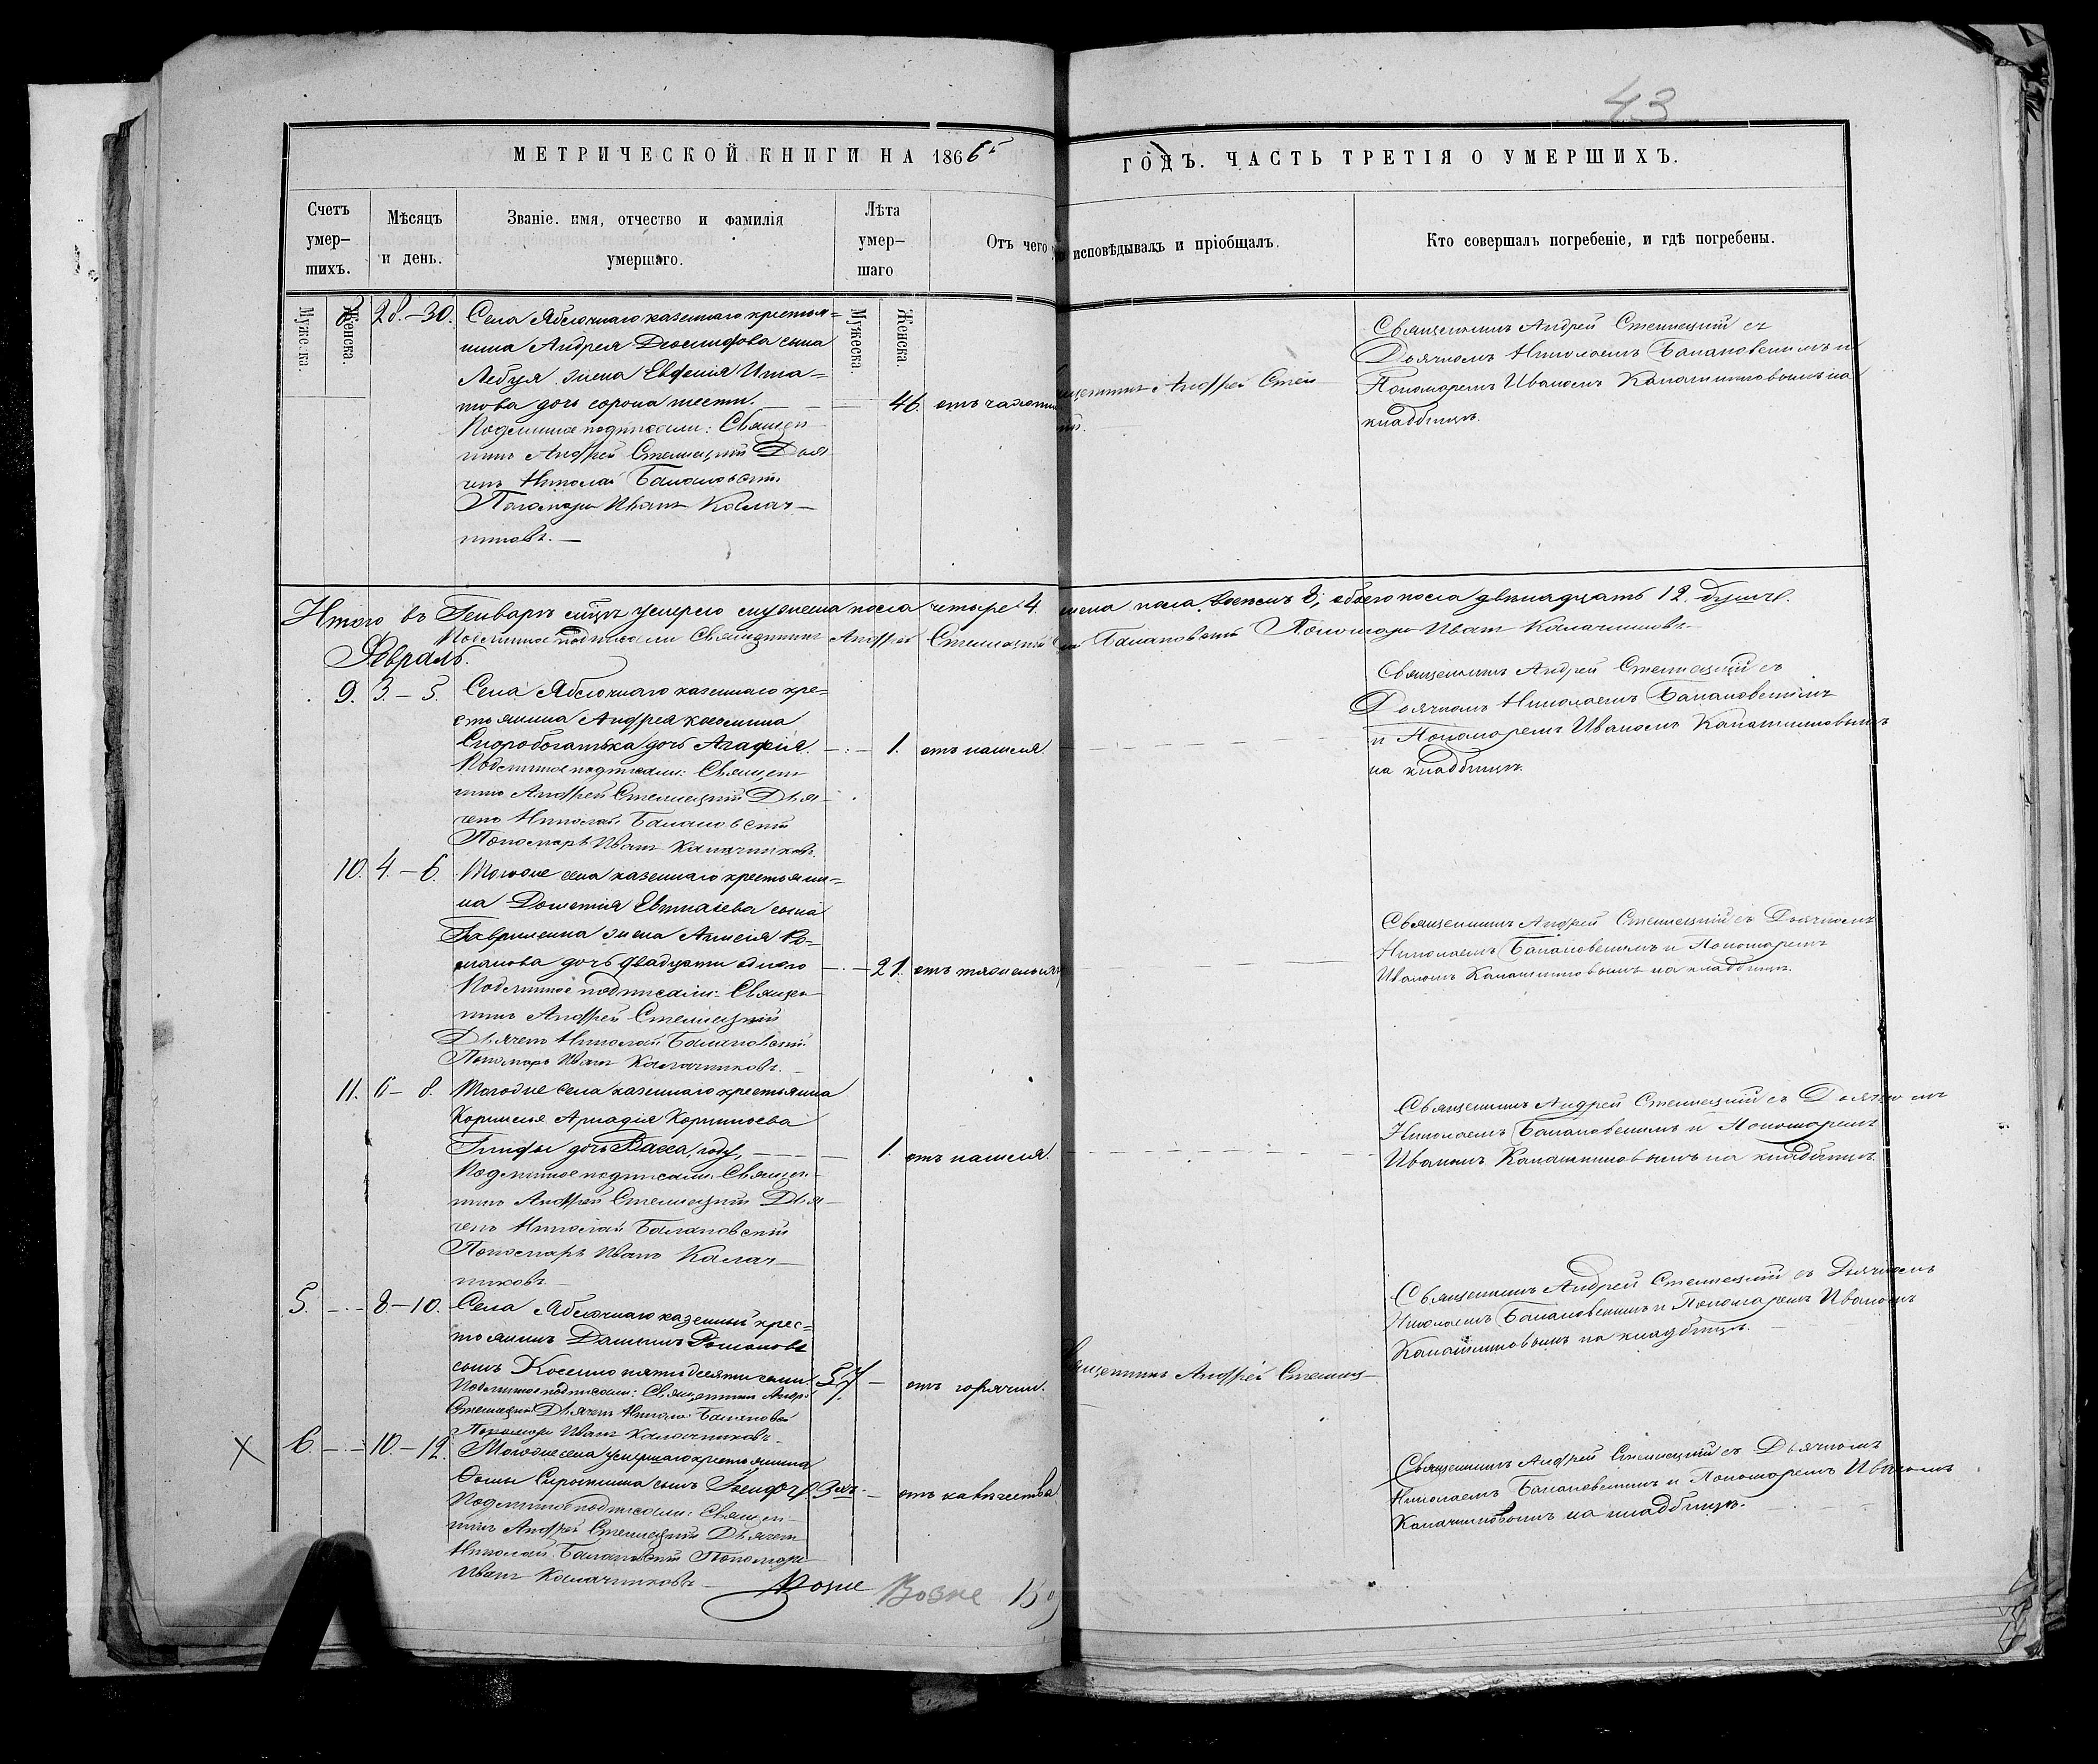 43
МЕТРИЧЕСКОЙ КНИГИ НА 1866й ГОДЪ. ЧАСТЬ ТРЕТІЯ О УМЕРШИХЪ.
Счетъ умер-шихъ.
Мѣсяцъ и день.
Званіе. имя, отчество и фамилія умершаго.
Лѣта умер-шаго
Отъ чего
исповѣдывалъ и пріобщалъ.
Кто совершалъ погребеніе, и гдѣ погребены.
Мужеска.
Женска.
Мужеска.
Женска.
8 28.-30. Села Яблочнаго казеннаго крестья=
нина Андрея сына
жена Евфимія Игна=
това дочь сорока шести. 46. отъ
Подлинное подписали: Священ
никъ Андрей Стеллецкій Дья
чекъ Николай Балановскій
Пономарь Иванъ Калач-
никовъ.
Священникъ Андрей Стел
Священникъ Андрей Стеллецкій съ
Дьячкомъ Николаемъ Балановскимъ и
Пономаремъ Иваномъ Калашниковымъ на
кладбищѣ.
Итого въ Генварѣ мцѣ умерло мужеска пола четыре 4. женска пола восемь 8, обоего пола двѣнадцать 12. душъ.
Подлинное подписали Священникъ Андрей Стеллецкій Балановскій Пономарь Иванъ Калачниковъ
Февраль.
9. 3.-5. Села Яблочнаго казеннаго кре=
стьянина Андрея Космина
Скоробогатька дочь Агафія. 1. отъ кашля.
Подлинное подписали: Священ
никъ Андрей Стеллецкій Дья-
чекъ Николай Балановскій
Пономарь Иванъ Калачниковъ.
Священникъ Андрей Стеллецкій съ
Дьячкомъ Николаемъ Балановскимъ
и Пономаремъ Иваномъ Калашниковымъ
на кладбищѣ.
10. 4.-6. Тогоже села казеннаго крестьяни=
на сына
Гавриленка жена Ро-
манова дочь двадцати одного 21. отъ
Подлинное подписали: Священ
никъ Андрей Стеллецкій
Дьячекъ Николай Балановскій
Пономарь Иванъ Калачниковъ.
Священникъ Андрей Стеллецкій съ Дьячкомъ
Николаемъ Балановскимъ и Пономаремъ
Иваномъ Калашниковымъ на кладбищѣ.
11. 6-8. Тогоже села казеннаго крестьянина
Корнилія Аркадія
дочь Васса, году, 1. отъ кашля.
Подлинное подписали: Священ
никъ Андрей Стеллецкій Дья-
чекъ Николай Балановскій
Пономарь Иванъ Калач-
никовъ.
Священникъ Андрей Стеллецкій съ Дьячкомъ
Николаемъ Балановскимъ и Пономаремъ
Иваномъ Калашниковымъ на кладбищѣ.
5. 8-10. Села Яблочнаго казенный крес=
тьянинъ Романовъ
сынъ пятидесяти семи 57 отъ горячки.
Подлинное подписали: Священникъ Андрей
Стеллецкій Дьячекъ Николай Балановскій
Пономарь Иванъ Калачниковъ.
Священникъ Андрей Стеллец
Священникъ Андрей Стеллецкій съ Дьячкомъ
Николаемъ Балановскимъ и Пономаремъ Иваномъ
Калашниковымъ на кладбищѣ.
X 6. 10.-12. Тогоже села умершаго крестьянина
Фомы сынъ 3 отъ
Подлинное подписали: Священ-
никъ Андрей Стеллецкій Дьячекъ
Николай Балановскій Пономарь
Иванъ Калачниковъ
Священникъ Андрей Стеллецкій съ Дьячкомъ
Николаемъ Балановскимъ и Пономаремъ Иваномъ
Калачниковымъ на кладбищѣ.